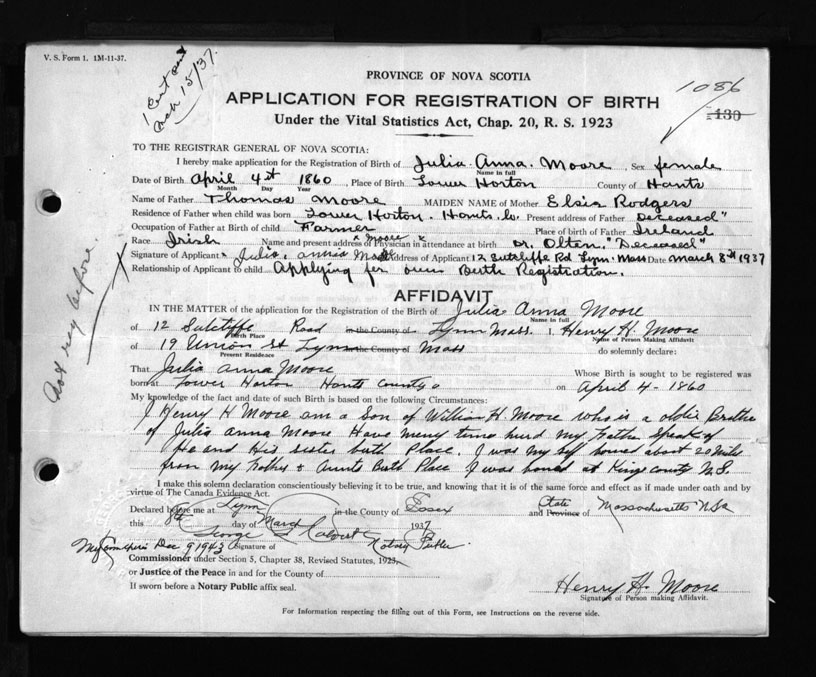 V. S. Form 1. 1M-11-37.
1 Cert sent
Mch 15/37.
PROVINCE OF NOVA SCOTIA
1086
130
APPLICATION FOR REGISTRATION OF BIRTH
Under the Vital Statistics Act, Chap. 20, R. S. 1923
TO THE REGISTRAR GENERAL OF NOVA SCOTIA:
I hereby make application for the Registration of Birth of Julia Anna Moore, Sex female
Name in full
Date of Birth April 4st 1860, Place of Birth Lower Horton County of Hants
Month Day Year
Name of Father Thomas Moore MAIDEN NAME of Mother Elsia Rodgers
Residence of Father when child was born Lower Horton. Hants. Co. Present address of Father Deceased"
Occupation of Father at Birth of child Farmer Place of birth of Father Ireland
Race Irish Name and present address of Physician in attendance at birth Dr. Olten, "Deceased"
Signature of Applicant x Julia. annia Moore x Address of Applicant 12 Sutcliffe Rd Lynn. Mass Date March 8th 1937
Relationship of Applicant to child Applying for own Birth Registration.
Not reg before.
AFFIDAVIT
IN THE MATTER of the application for the Registration of the Birth of Julia Anna Moore
Name in full
of 12 Sutcliffe Road in the County of Lynn Mass. I, Henry H. Moore
Birth Place Name of Person Making Affidavit
of 19 Union st Lynn in the County of Mass do solemnly declare:
Present Residence
That Julia anna Moore Whose Birth is sought to be registered was
born at Lower Horton Hants County on April 4 - 1860
My knowledge of the fact and date of such Birth is based on the following Circumstances:
I Henry H Moore am a Son of William H. Moore who is a oldie Brother
of Julia anna Moore Have meny times hurd my Father Speak of
he and His sister birth Place. I was my self borned about 20 miles
from my Father & Aunts Birth Place I was borned at Kings County N.S.
I make this solemn declaration conscientiously believing it to be true, and knowing that it is of the same force and effect as if made under oath and by
virtue of The Canada Evidence Act.
Declared before me at Lynn in the County of Essex and Province of State Massachusetts USA
this 8th day of March 1937
George Calvert Notary Public
My Comm expires Dec 9 1943 Signature of
Commissioner under Section 5, Chapter 38, Revised Statutes, 1923,
or Justice of the Peace in and for the County of
If sworn before a Notary Public affix seal.
Henry H. Moore
Signature of Person making Affidavit.
For Information respecting the filling out of this Form, see Instructions on the reverse side.